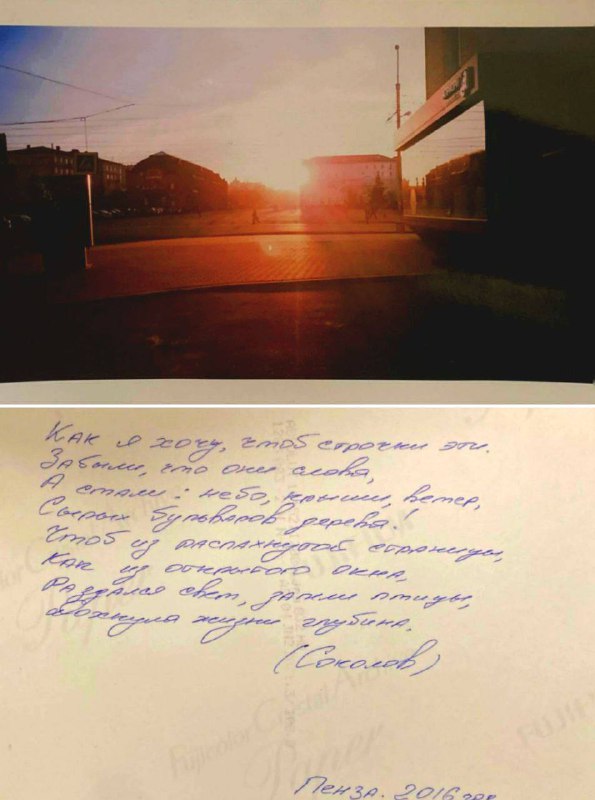 Как я хочу, чтоб строчки эти.
Забыли, что они слова,
А стали: небо, крыши, ветер,
Сырых бульваров дерева!
Чтоб из распахнутой страницы,
Как из открытого окна,
Раздался свет, запели птицы,
дохнула жизни глубина.
(Соколов)
Fujicolor Crystal Ar
Paper
Пенза. 2016